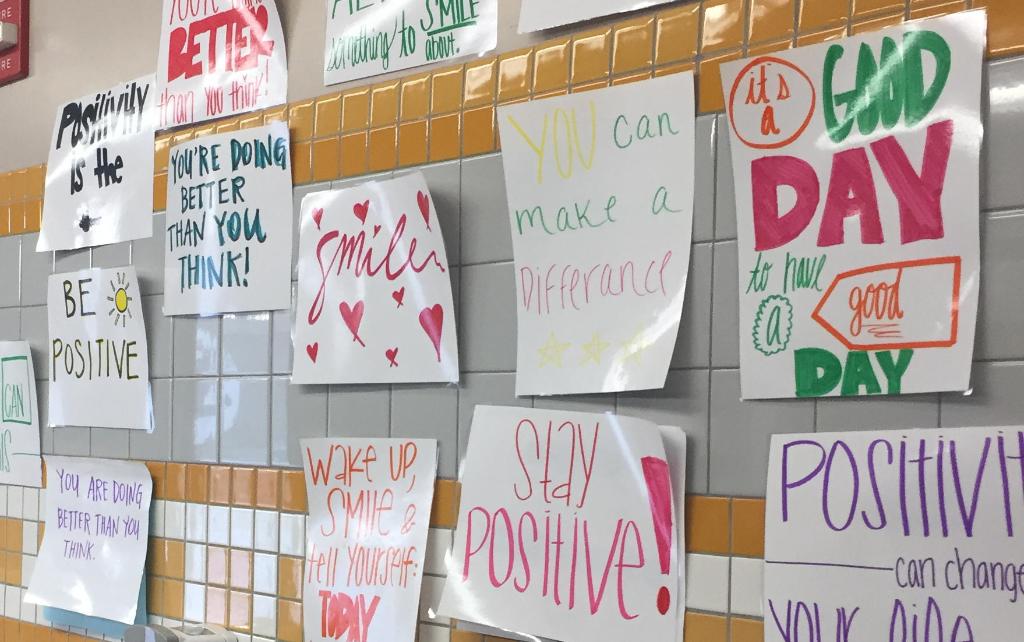 BETTER
than You think!
something to SMILE
about.
POSitiVitY
is the
YOU'RE DOING
BETTER
THAN YOU
THINK!
Smile
YOU can
make a
Differance
it's
a
GOOD
DAY
to have
a
good
DAY
BE
POSITIVE
CAN
YOU ARE DOING
BETTER THAN YOU
THINK.
Wake up,
SMILE &
tell Yourself:
TODAY
Stay
POSITIVE!
POSITIVIT
can change
your